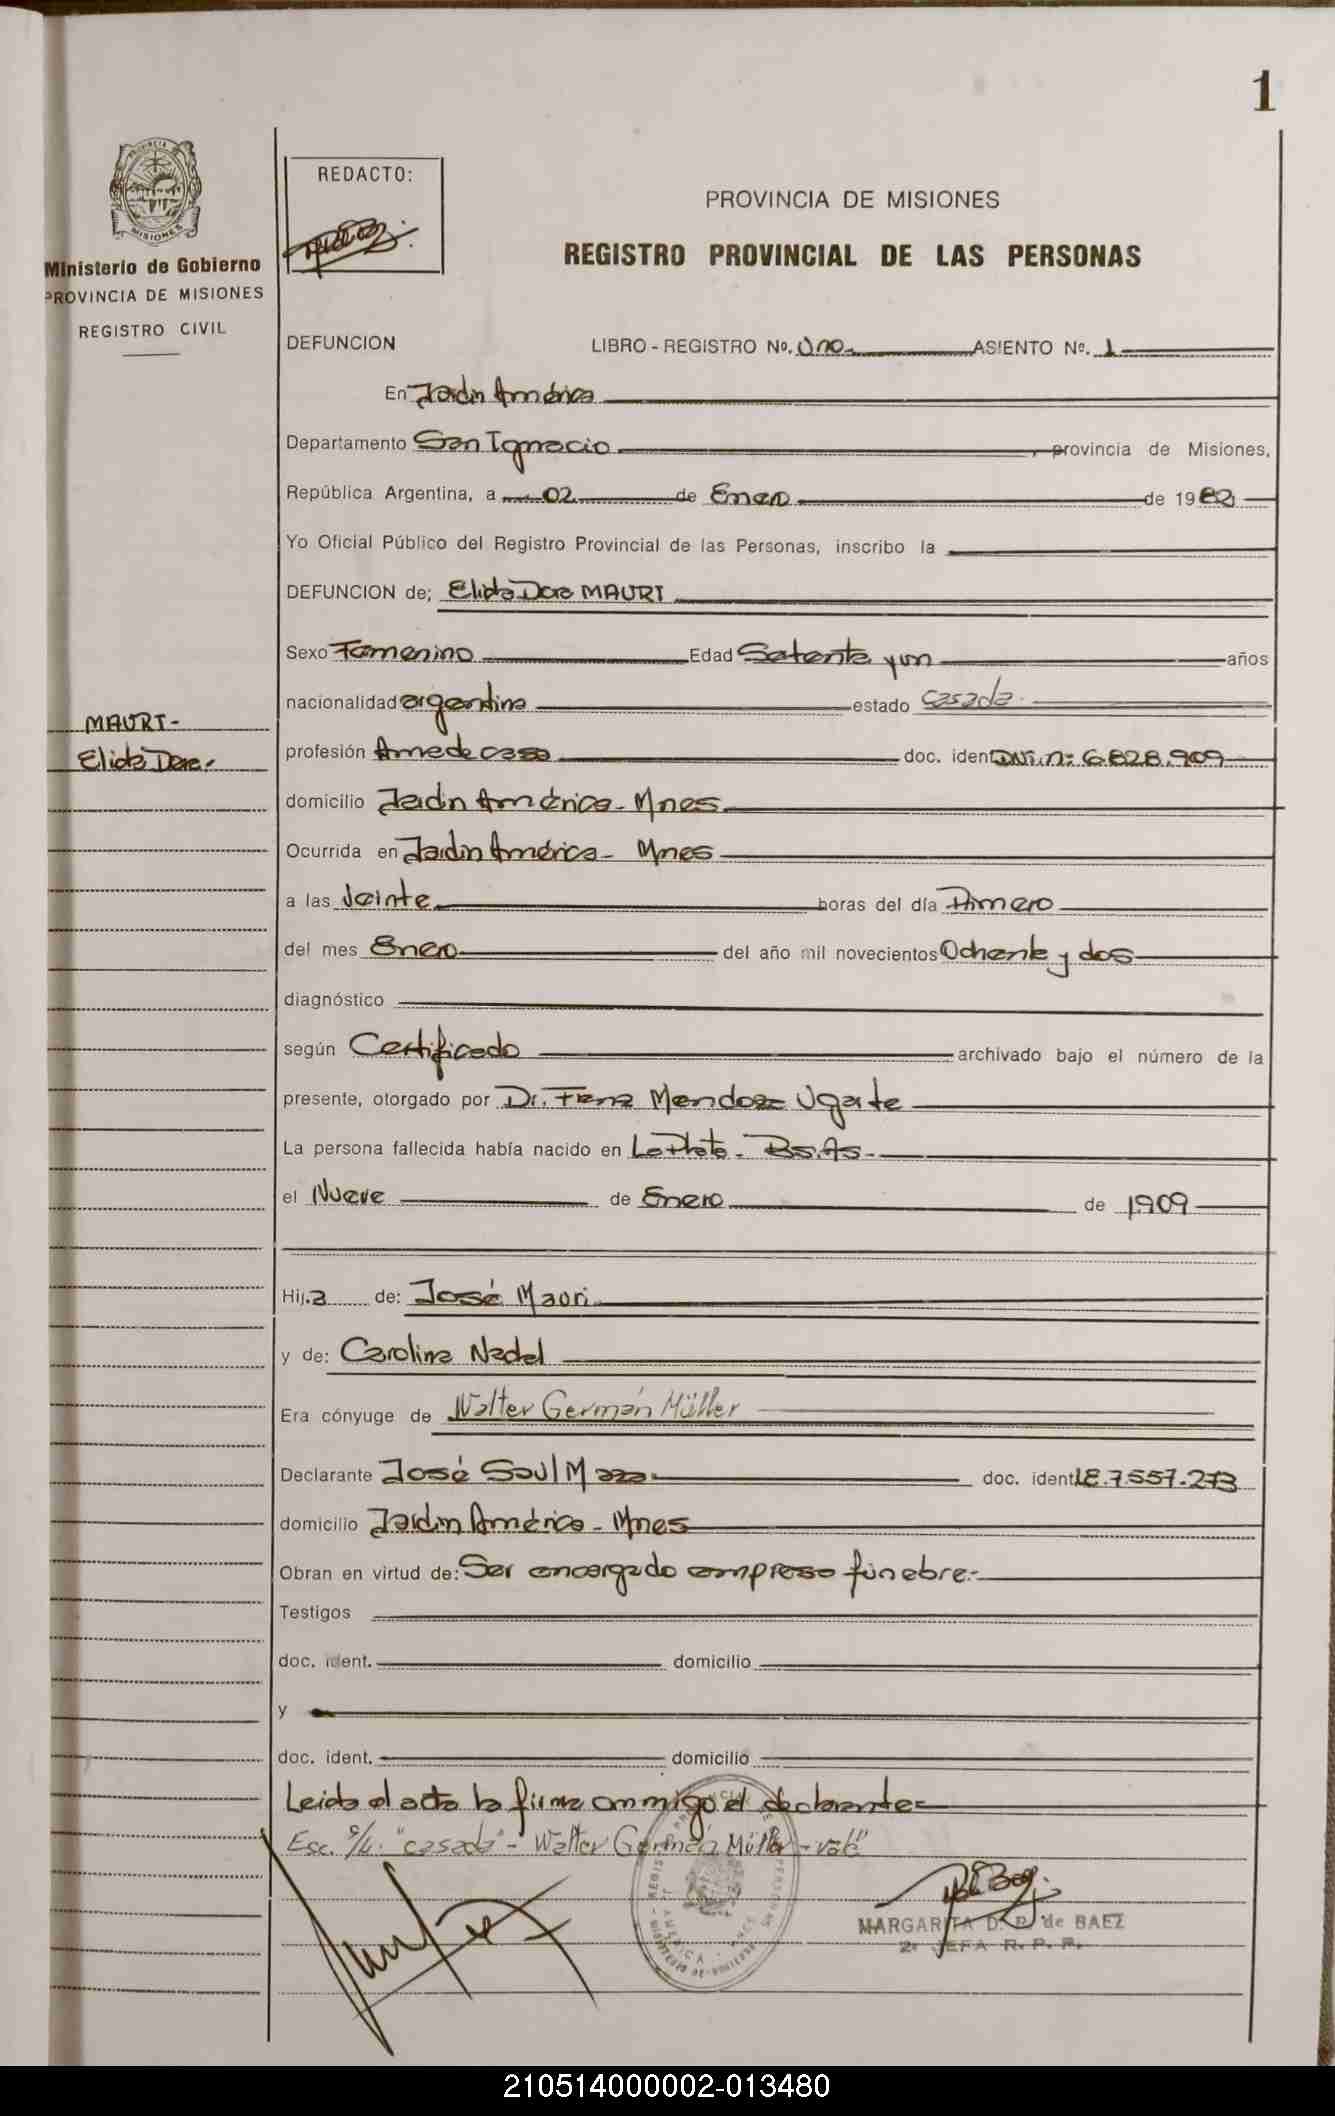 1
REDACTO:
PROVINCIA DE MISIONES
REGISTRO PROVINCIAL DE LAS PERSONAS
Ministerio de Gobierno
PROVINCIA DE MISIONES
REGISTRO CIVIL
DEFUNCION LIBRO - REGISTRO Nº. Uno ASIENTO Nº. 1
En Jardín América
Departamento San Ignacio, provincia de Misiones,
República Argentina, a 02 de Enero de 1982
Yo Oficial Público del Registro Provincial de las Personas, inscribo la
DEFUNCION de; Elida Dora MAURI
Sexo Femenino Edad Setenta y un años
nacionalidad argentina estado casada
MAURI-
Elida Dora.-
profesión Ama de casa doc. ident. DNI. nº 6.828.909
domicilio Jardín América - Mnes
Ocurrida en Jardín América - Mnes
a las Veinte horas del día Primero
del mes Enero del año mil novecientos Ochenta y dos
diagnóstico
según Certificado archivado bajo el número de la
presente, otorgado por Dr. Franz Mendoza Ugarte
La persona fallecida había nacido en La Plata - Bs.As-
el Nueve de Enero de 1909
Hija de: José Mauri
y de: Carolina Nadel
Era cónyuge de Walter Germán Müller
Declarante José Saul Maza doc. ident. L.E. 7.557.273
domicilio Jardín América - Mnes
Obran en virtud de: Ser encargado empresa fúnebre.-
Testigos
doc. ident. domicilio
y
doc. ident. domicilio
Leida el acta la firma conmigo el declarante-
Esc. s/l. "casada" - Walter Germán Müller - vale"
MARGARITA D. P. de BAEZ
2º JEFA R. P. P.
210514000002-013480